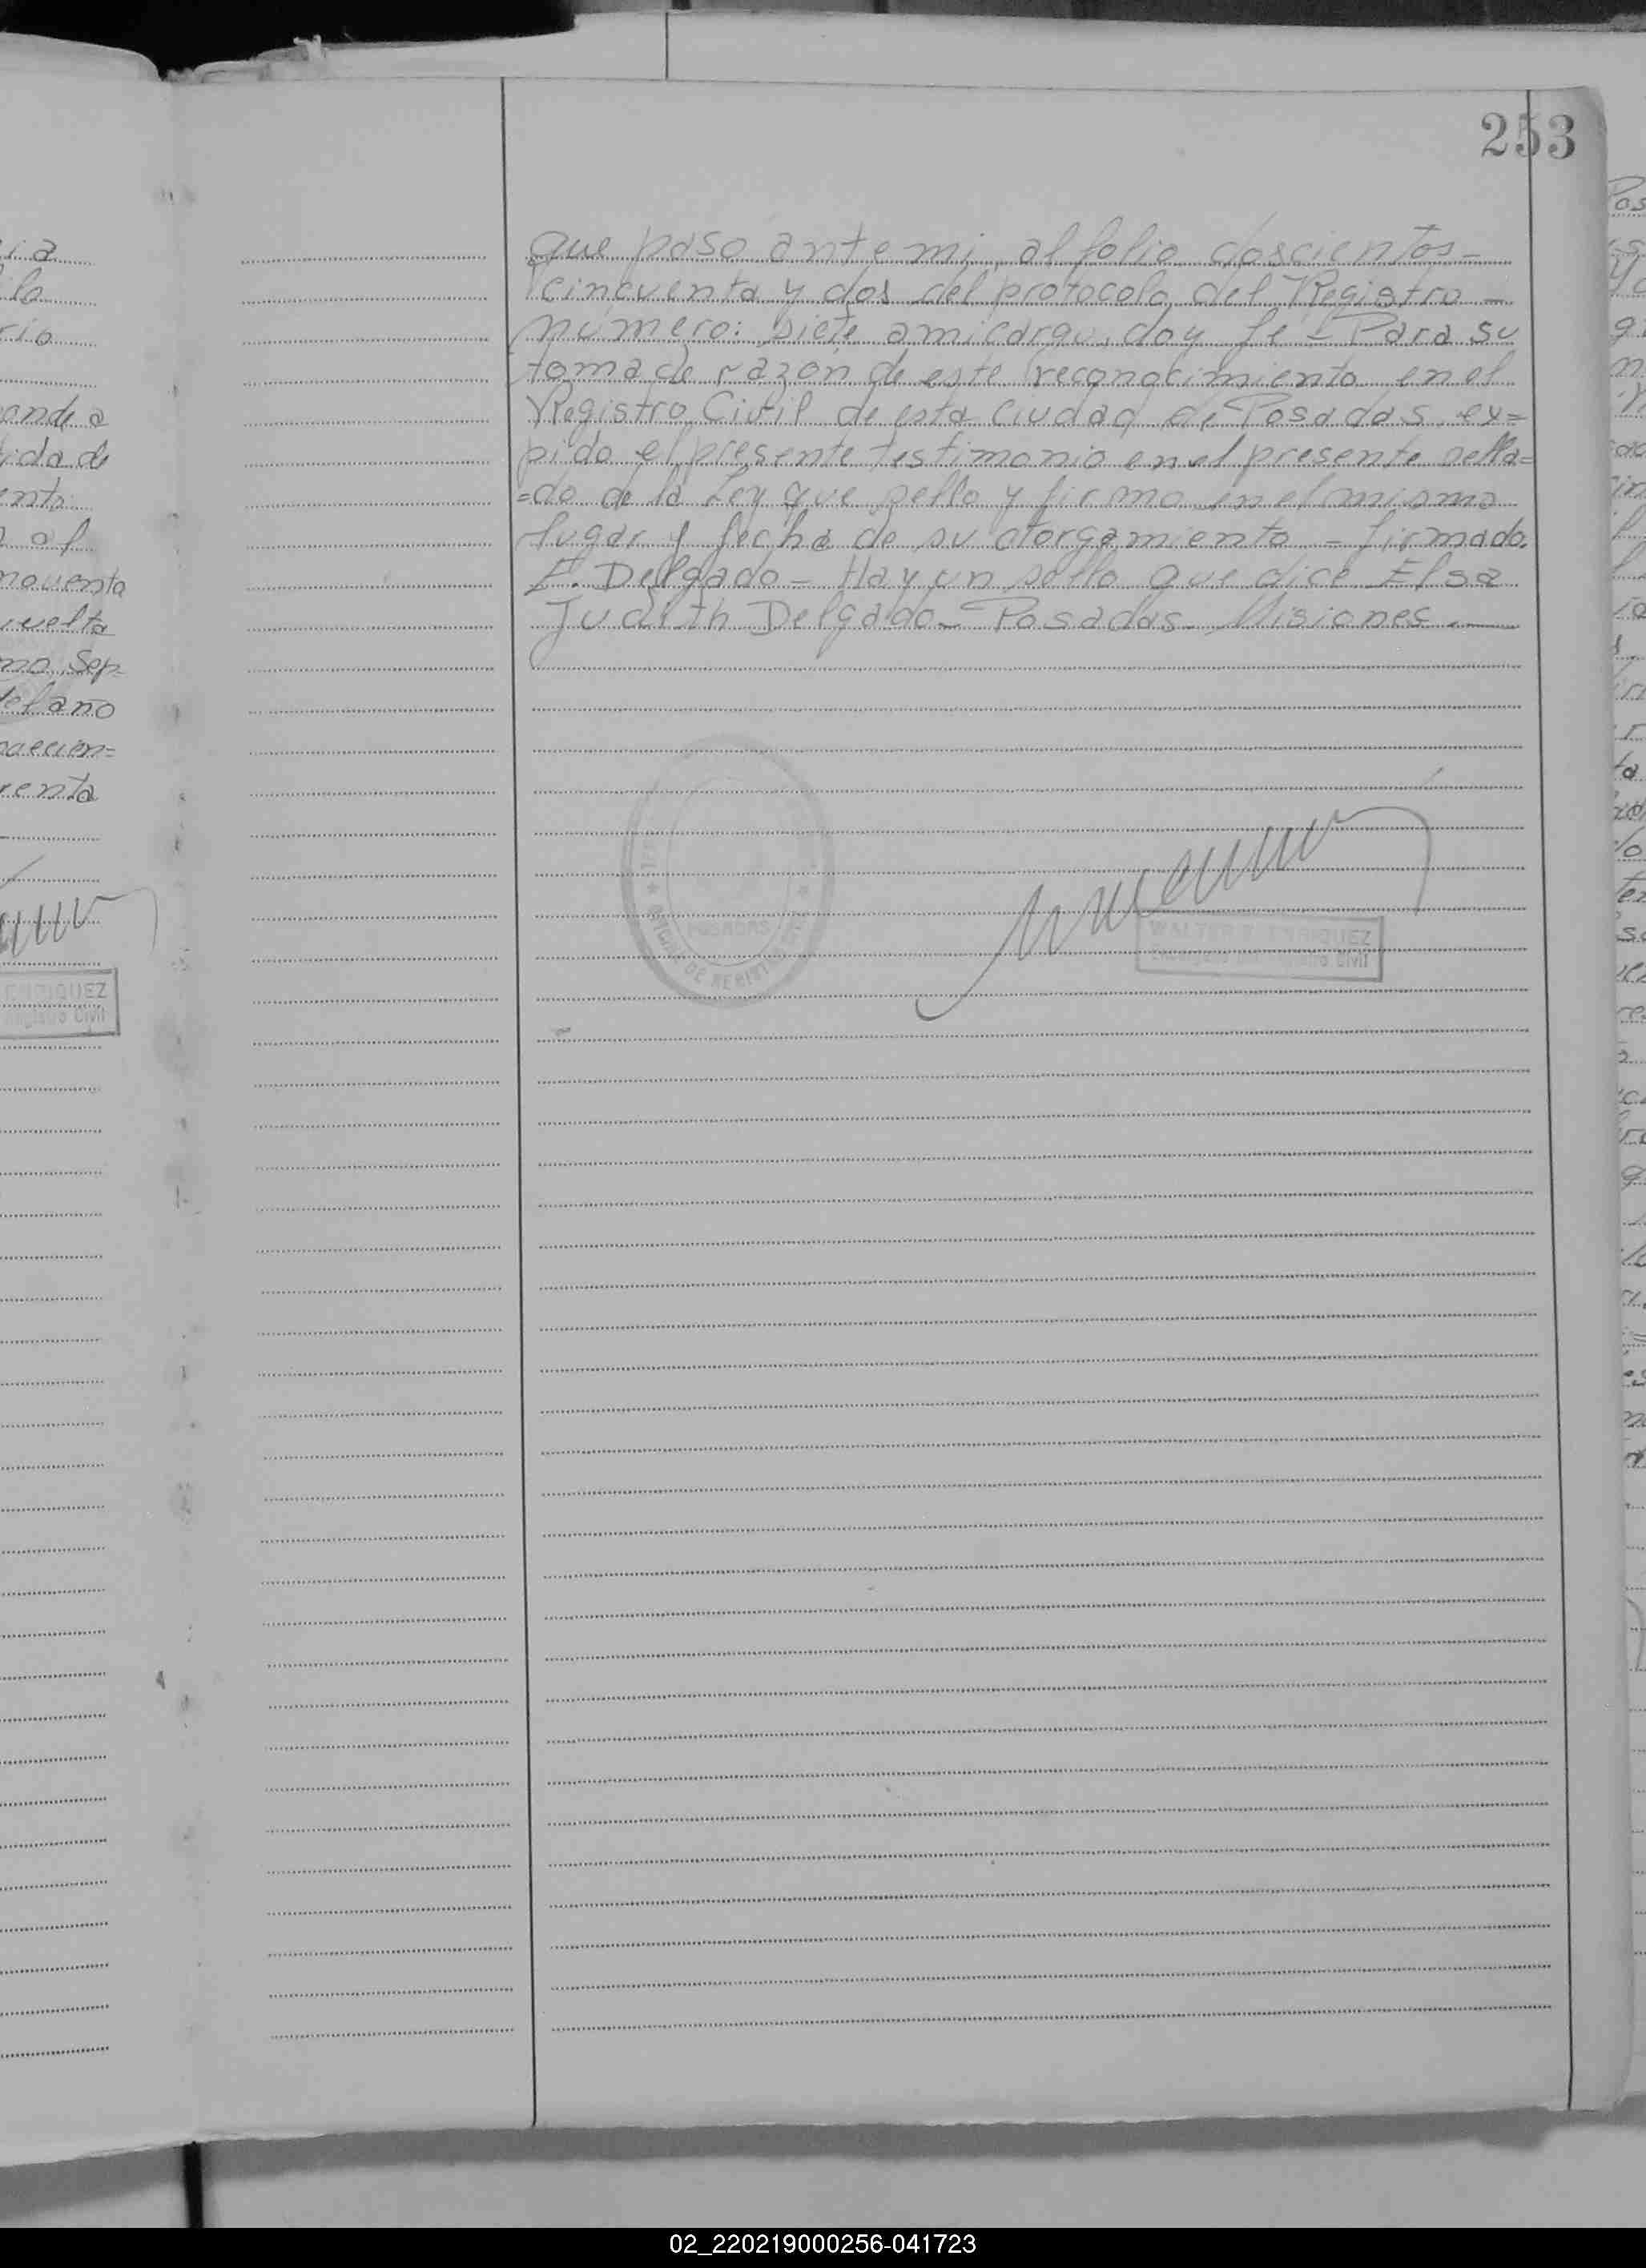 253
que paso ante mi, al folio doscientos-
cincuenta y dos del protocolo del Registro-
número: siete a mi cargo, doy fe - Para su
toma de razón de este reconocimiento en el
Registro Civil de esta Ciudad de Posadas, ex=
pido el presente testimonio en el presente sella=
=do de la Ley que sello y firmo en el mismo
lugar y fecha de su otorgamiento - firmado.
E. Delgado - Hay un sello que dice Elsa
Judith Delgado - Posadas - Misiones.
POSADAS
WALTER ENRIQUEZ
Registro Civil
ia
lo
rio
ande a
ida de
ento
al
novento
vuelta
mo Sep-
del año
renta
ENRIQUEZ
Registro Civil
02_220219000256-041723